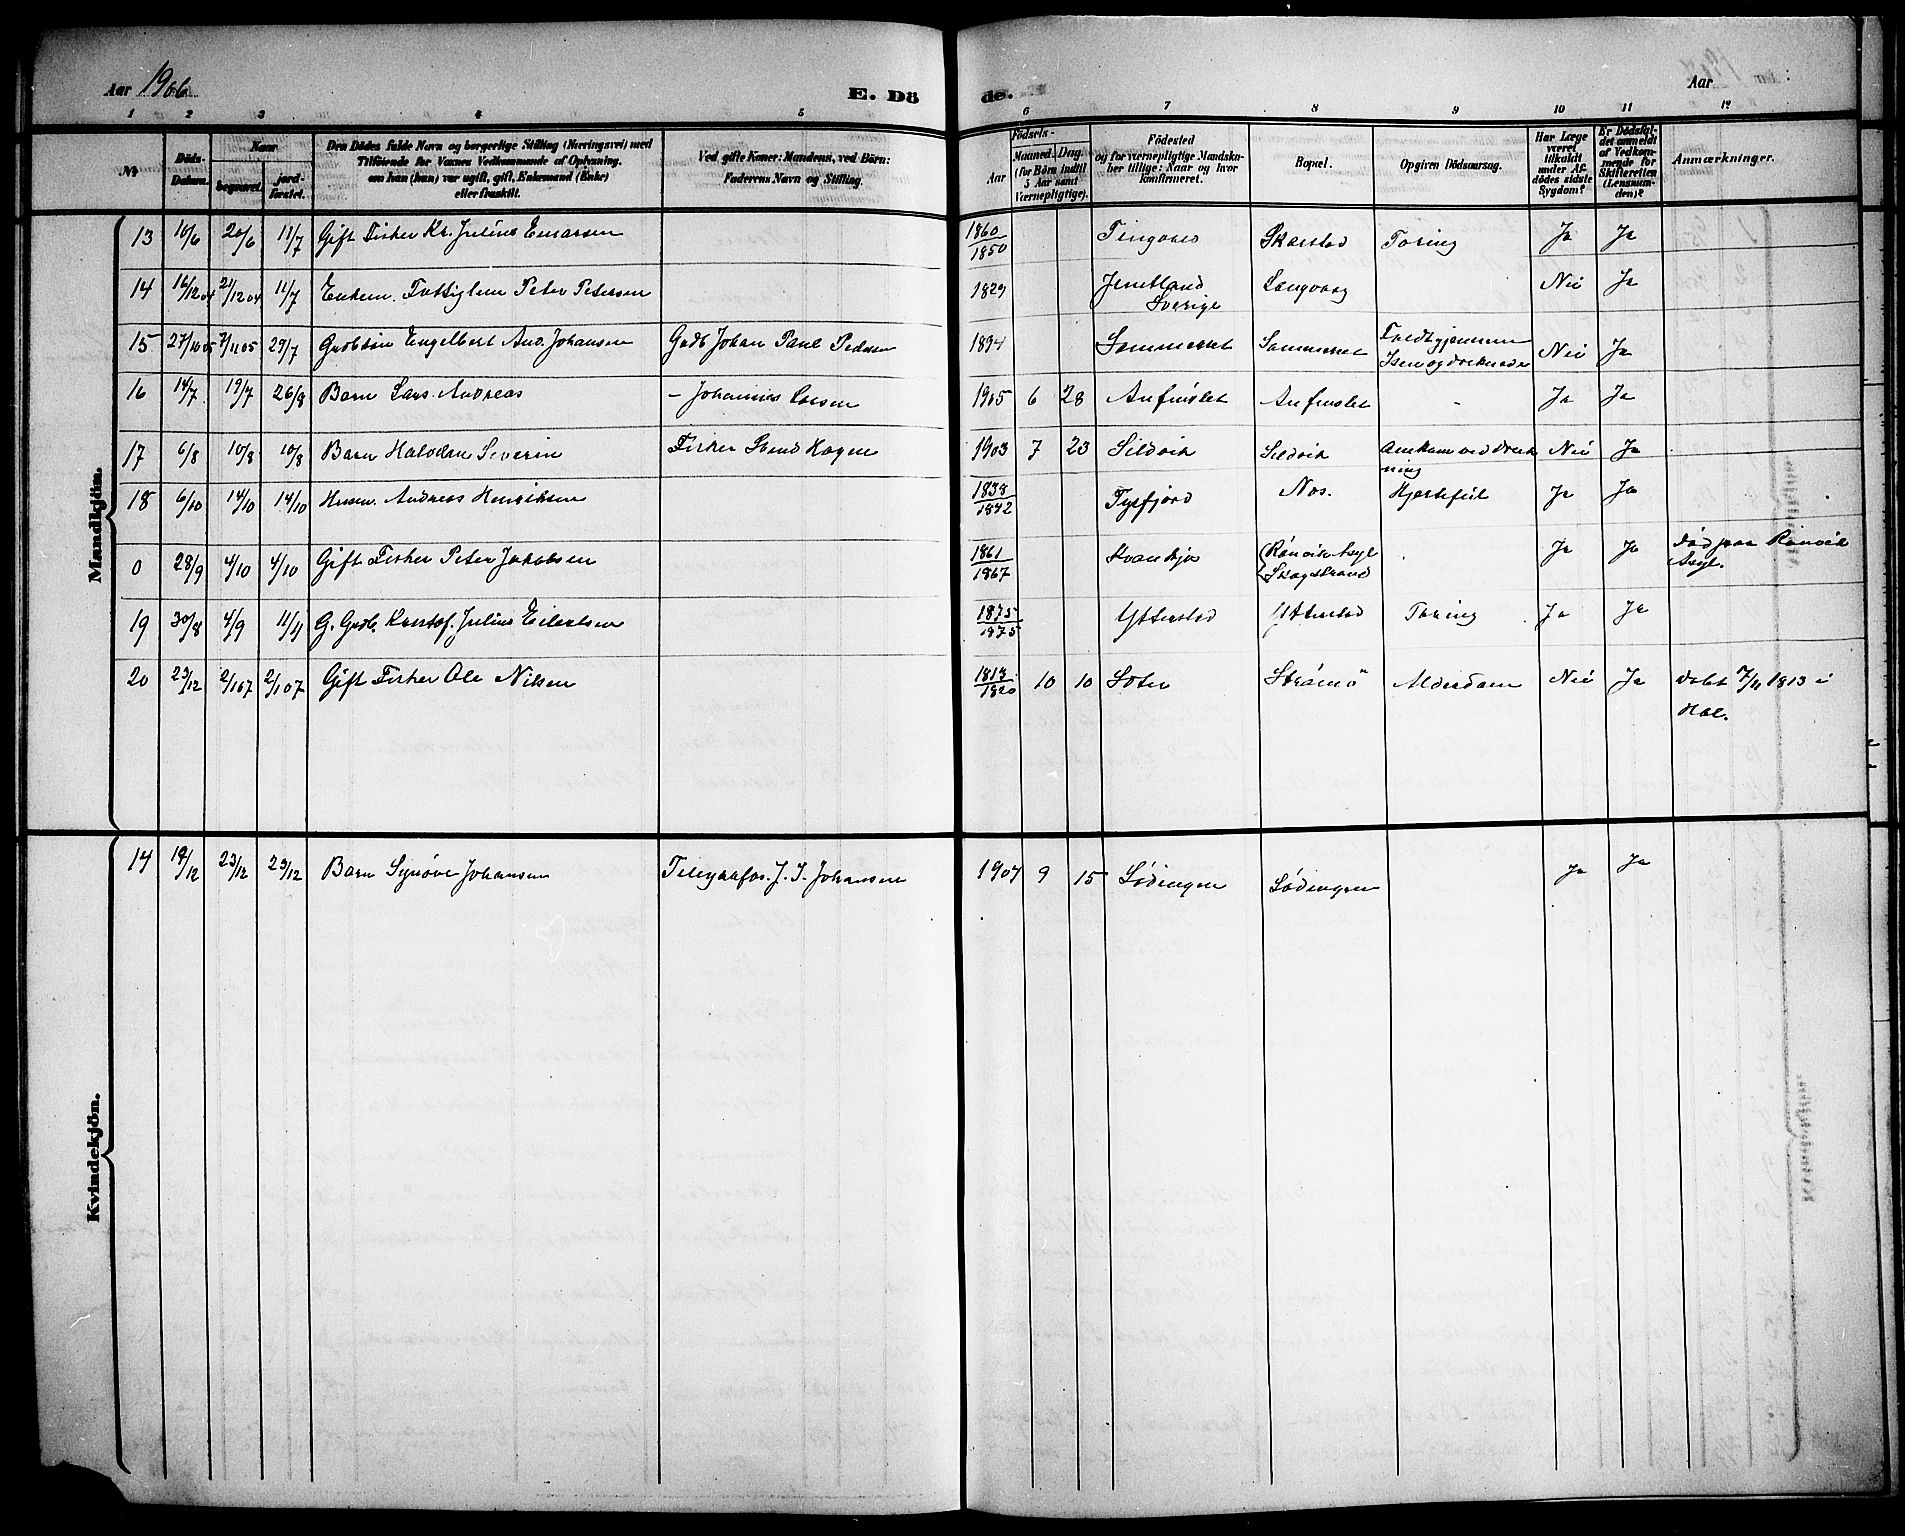 Aar 1906 E. Dö de. Aar
1 2 3 4 5 6 7 8 9 10 11 12
№ Döds-Datum. Naar begravet. jordfæstet. Den Dödes fulde Navn og borgerlige Stilling (Næringsvei) med Tilföiende for Voxnes Vedkommende af Oplysning, om han (hun) var ugift, gift, Enkemand (Enke) eller fraskilt. Ved gifte Koner: Mandens, ved Börn: Faderens Navn og Stilling. Födsels- Aar Maaned. Dag. (for Börn indtil 5 Aar samt Værnepligtige). Födested og for værnepligtige Mandskaber tillige: Naar og hvor konfirmeret. Bopæl. Opgiven Dödsaarsag. Har Læge været tilkaldt under Afdödes sidste Sygdom? Er Dödsfaldet anmeldt af Vedkommende for Skifteretten (Lensmanden)? Anmærkninger.
Mandkjön.
13 16/6 20/6 11/7 Gift Fisker Kr. Julius Enarsen 1860/1850 Skarstad Tæring Ja Ja
14 16/12 04 21/12 04 11/7 Enkem. Fattiglem Peter Petersen 1829 Jemtland Sverige Langvaag Nei Ja
15 27/10 05 7/11 05 29/7 Gbrsøn Engelbert And. Johansen Gdbr Johan Paul Pedersen 1894 Sommerset Sommerset Faldt gjennem Isen og druknede Nei Ja
16 14/7 19/7 26/8 Barn Lars Andreas - Johannes Larsen 1905 6 28 Anfinslet Anfinslet - Ja Ja
17 6/8 10/8 10/8 Barn Halvdan Severin Fisker Svend Hagen 1903 7 23 Sildvik Sildvik Omkom ved drukning Nei Ja
18 6/10 14/10 14/10 Husm. Andreas Henriksen 1838/1842 Tysfjord Nos. Hjertefeil Ja Ja
0 28/9 4/10 4/10 Gift Fisker Peter Jakobsen 1861/1867 Kvænkjos Rønvik Asyl Skogstrand Ja Ja Død paa Rønvik Asyl.
19 30/8 4/9 11/11 G. Gbr. Kristof. Julius Eilertsen 1875/1875 Ytterstad Ytterstad Tæring Ja Ja
20 23/12 2/1 07 2/1 07 Gift Fisker Ole Nilsen 1813/1820 10 10 Strømø Alderdom Nei Ja Døbt 7/11 1813 i Hol.
Kvindekjön.
14 19/12 23/12 23/12 Barn Synøve Johansen Telegrafbs. J. J. Johansen 1904 9 15 Lødingen Lødingen Ja Ja